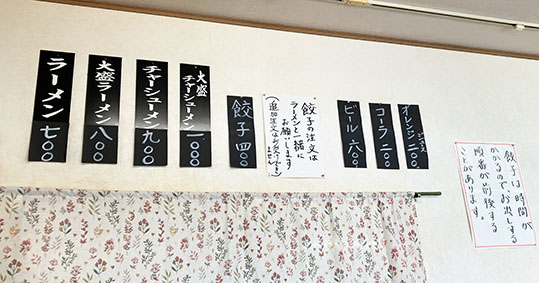 ラーメン 七〇〇
大盛ラーメン 八〇〇
チャーシューメン 九〇〇
大盛
チャーシューメン 一、〇〇〇
餃子 四〇〇
餃子の注文は
ラーメンと一緒に
お願いします
(追加注文はお受けできません)
ビール 六〇〇
コーラ 二〇〇
オレンジジュース 二〇〇
餃子は時間が
かかるので、お出しする
順番が前後する
ことがあります。